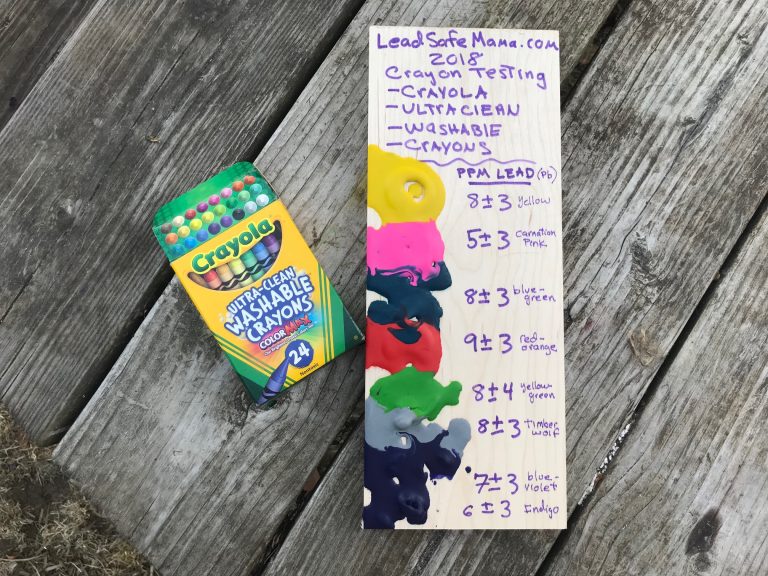 LeadSafeMama.com
2018
Crayon Testing
-CRAYOLA
-ULTRACLEAN
-WASHABLE
-CRAYONS
PPM LEAD (Pb)
8±3 yellow
5±3 carnation Pink
8±3 blue-green
9±3 red-orange
8±4 yellow green
8±3 timber wolf
7±3 blue-violet
6±3 Indigo
Crayola
ULTRA-CLEAN
WASHABLE
CRAYONS
COLOR MAX
24
Nontoxic